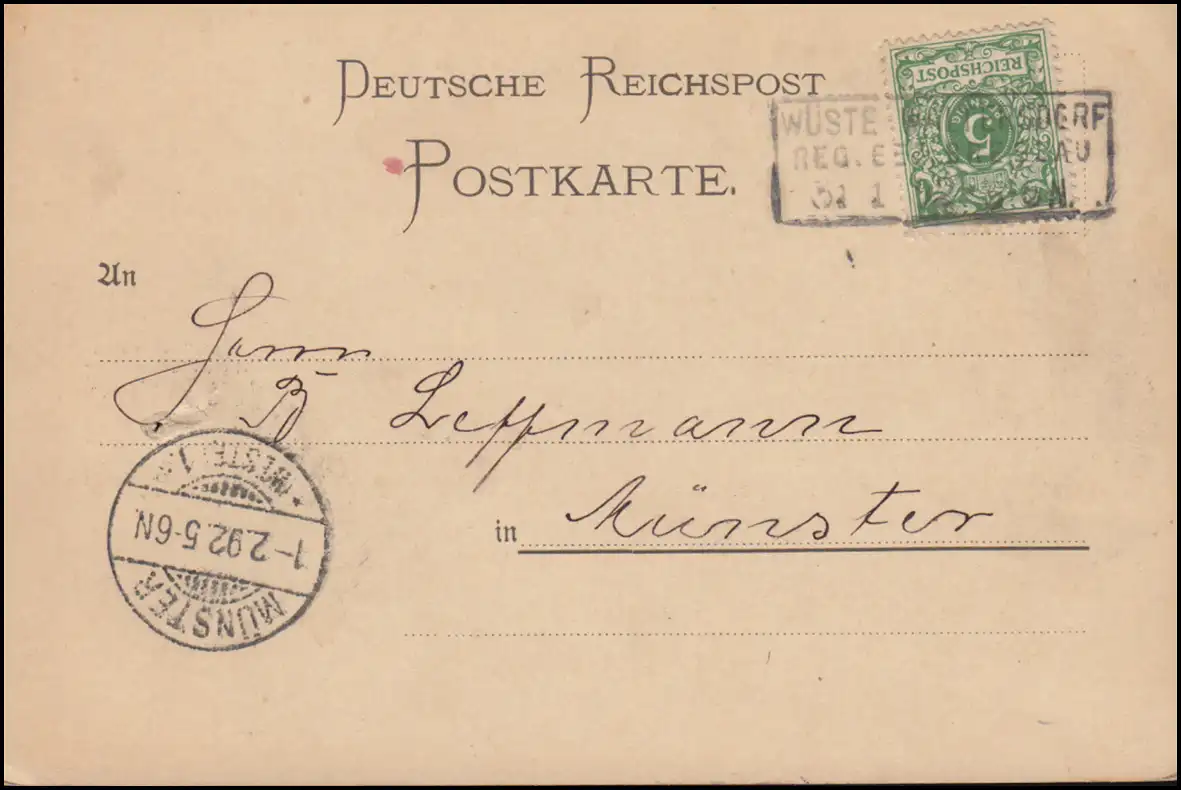 DEUTSCHE REICHSPOST
POSTKARTE.
REICHSPOST
5
WÜSTE
REG. LAU
31 1
An
Herrn
Dr Leffmann
in Münster
MÜNSTER
1-2.92.5-6N.
*(WESTF.) 1